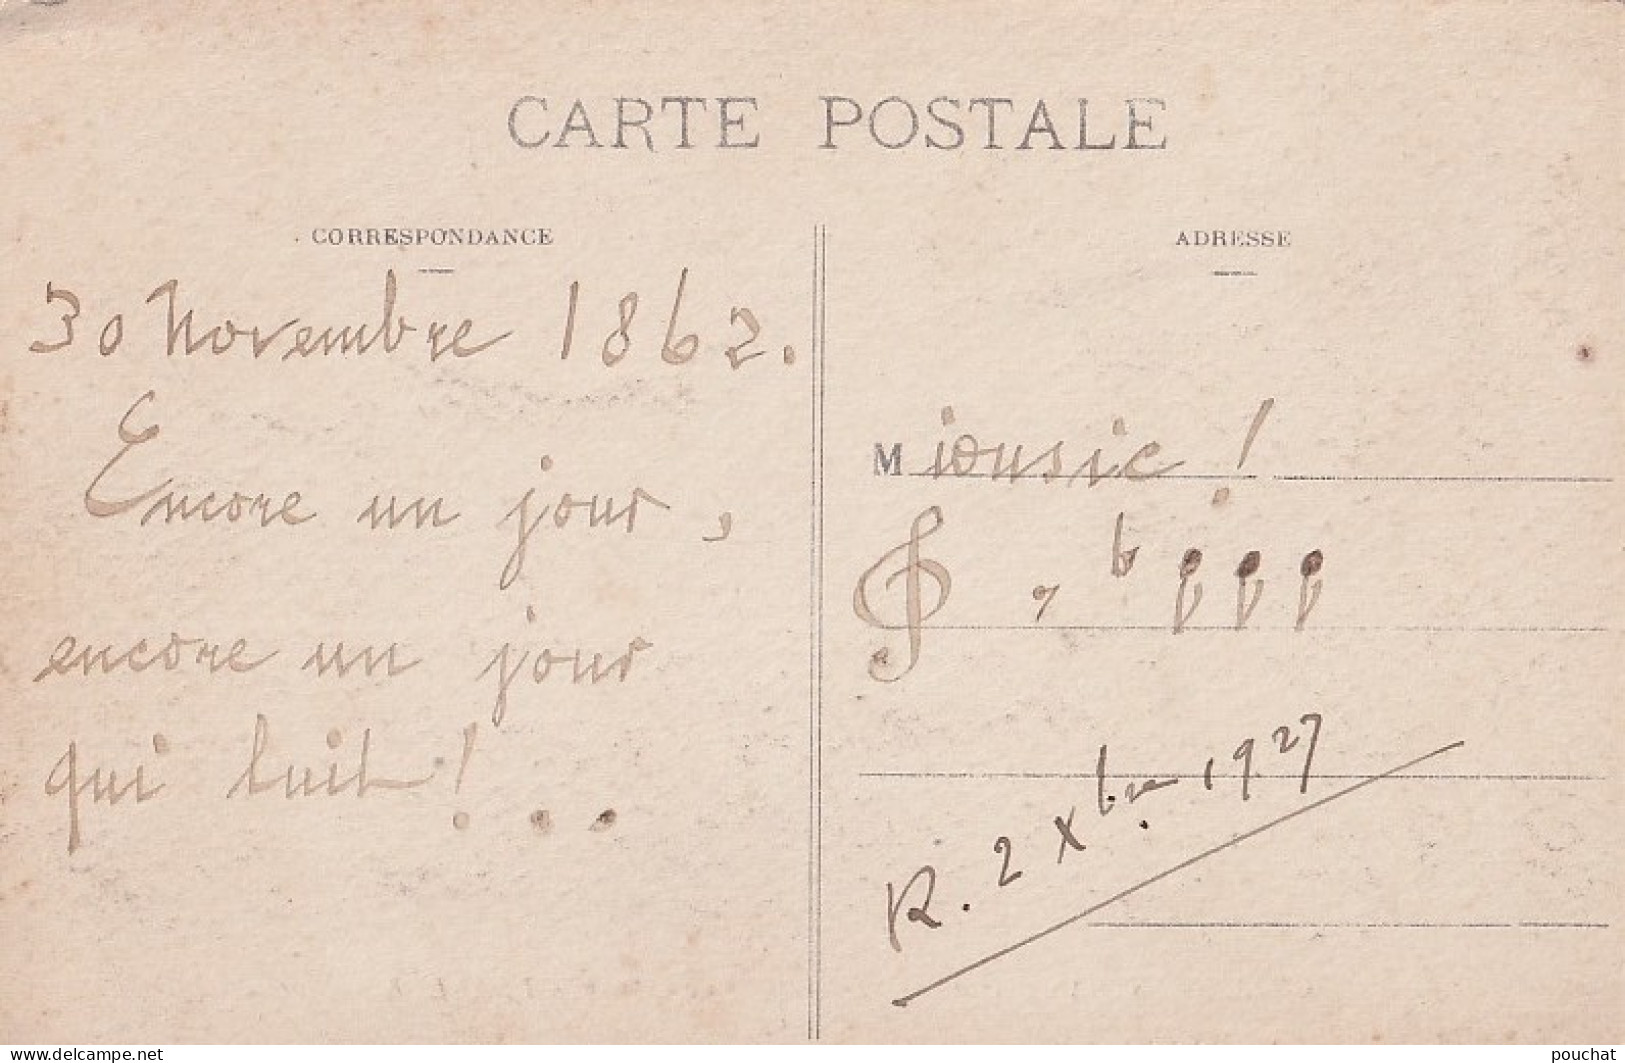 CARTE POSTALE
CORRESPONDANCE
30 Novembre 1862.
Encore un jour,
encore un jour
qui luit!...
ADRESSE
Miousic!
R. 2 Xbre 1927
www.delcampe.net
pouchat